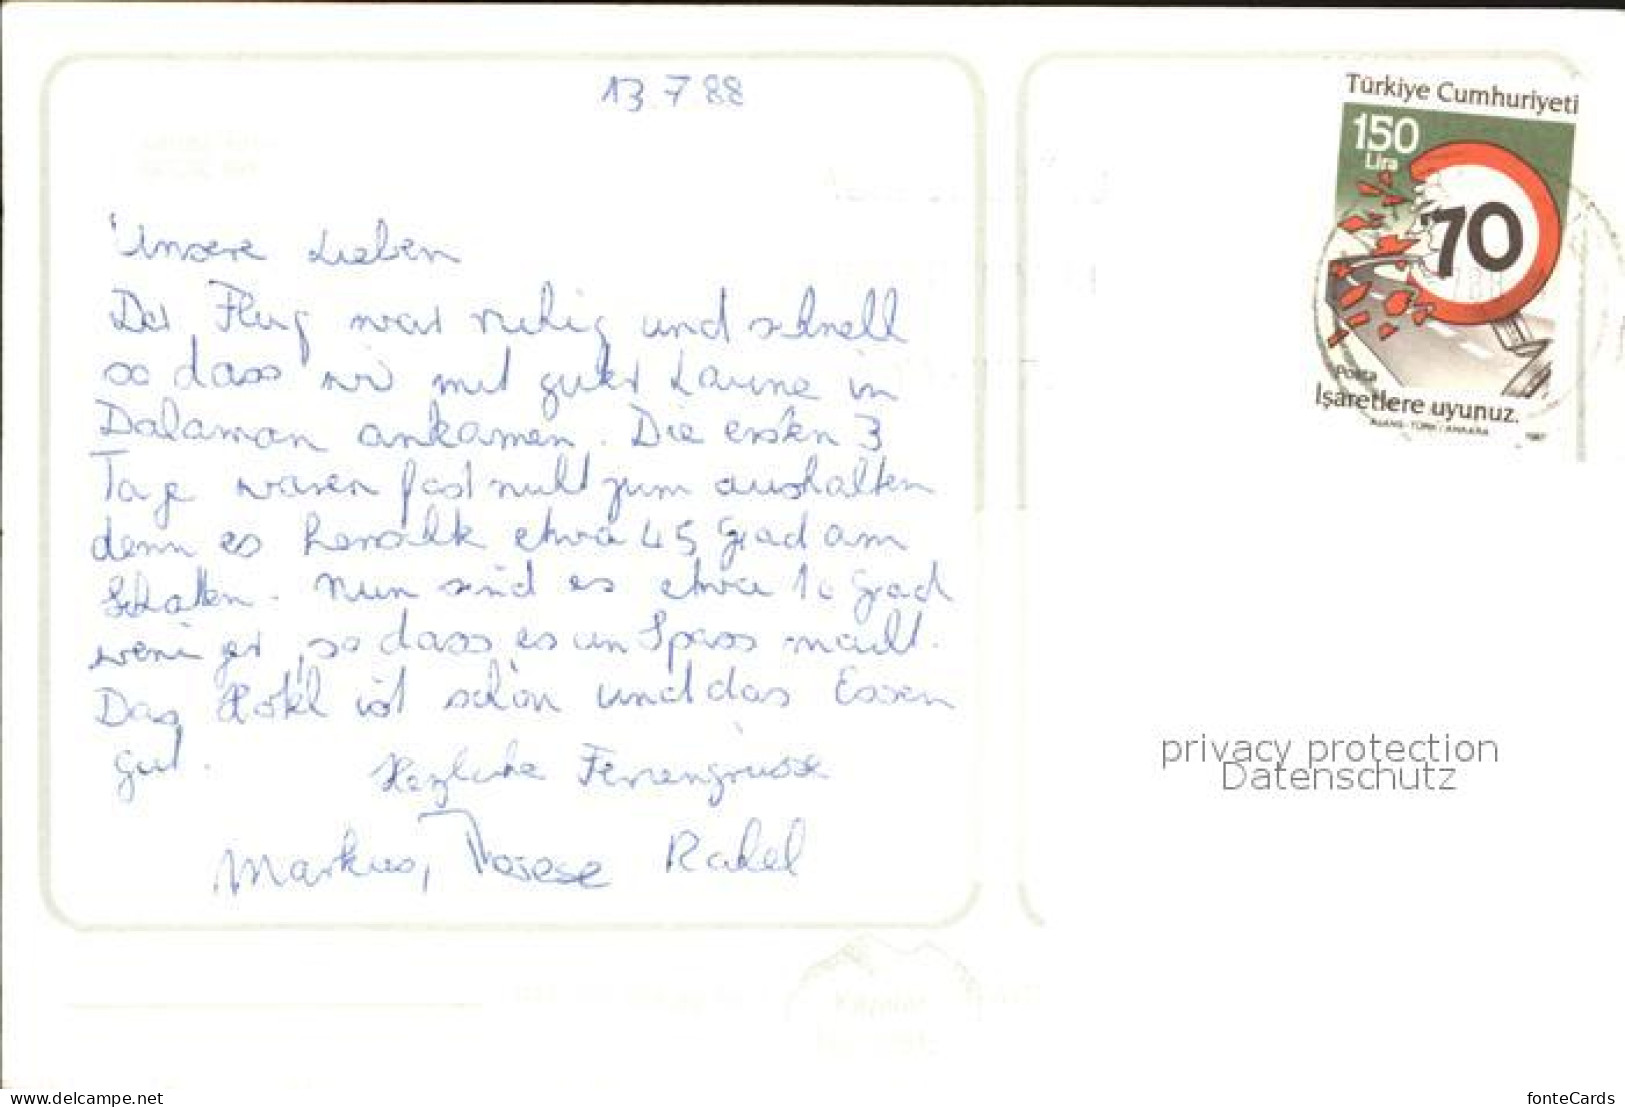 13 7 88
Türkiye Cumhuriyeti
150
Lira
70
Posta
Işaretlere uyunuz.
AJANS-TÜRK / ANKARA 1987
Unsere Lieben
Der Flug war ruhig und schnell
so dass wir mit guter Laune in
Dalaman ankamen. Die ersten 3
Tage waren fast nicht zum aushalten
denn es etwa 45 Grad am
Schatten. Nun sind es etwa 10 Grad
weniger, so dass es un Spass macht.
Das Hotel ist schön und das Essen
gut.
Herzliche Feriengrüsse
Markus, Therese Rahel
privacy protection
Datenschutz
www.delcampe.net
fonteCards